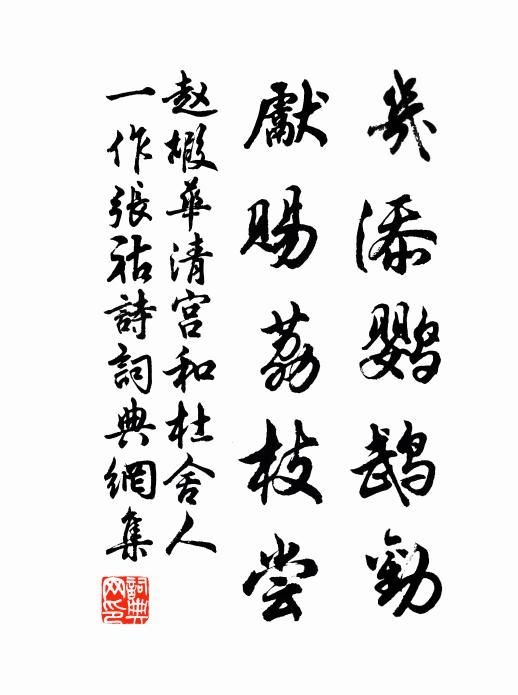 幾添鸚鵡勸
獻賜荔枝尝
赵嘏華清宫和杜舍人
一作張祜詩詞典網集
詞典网印